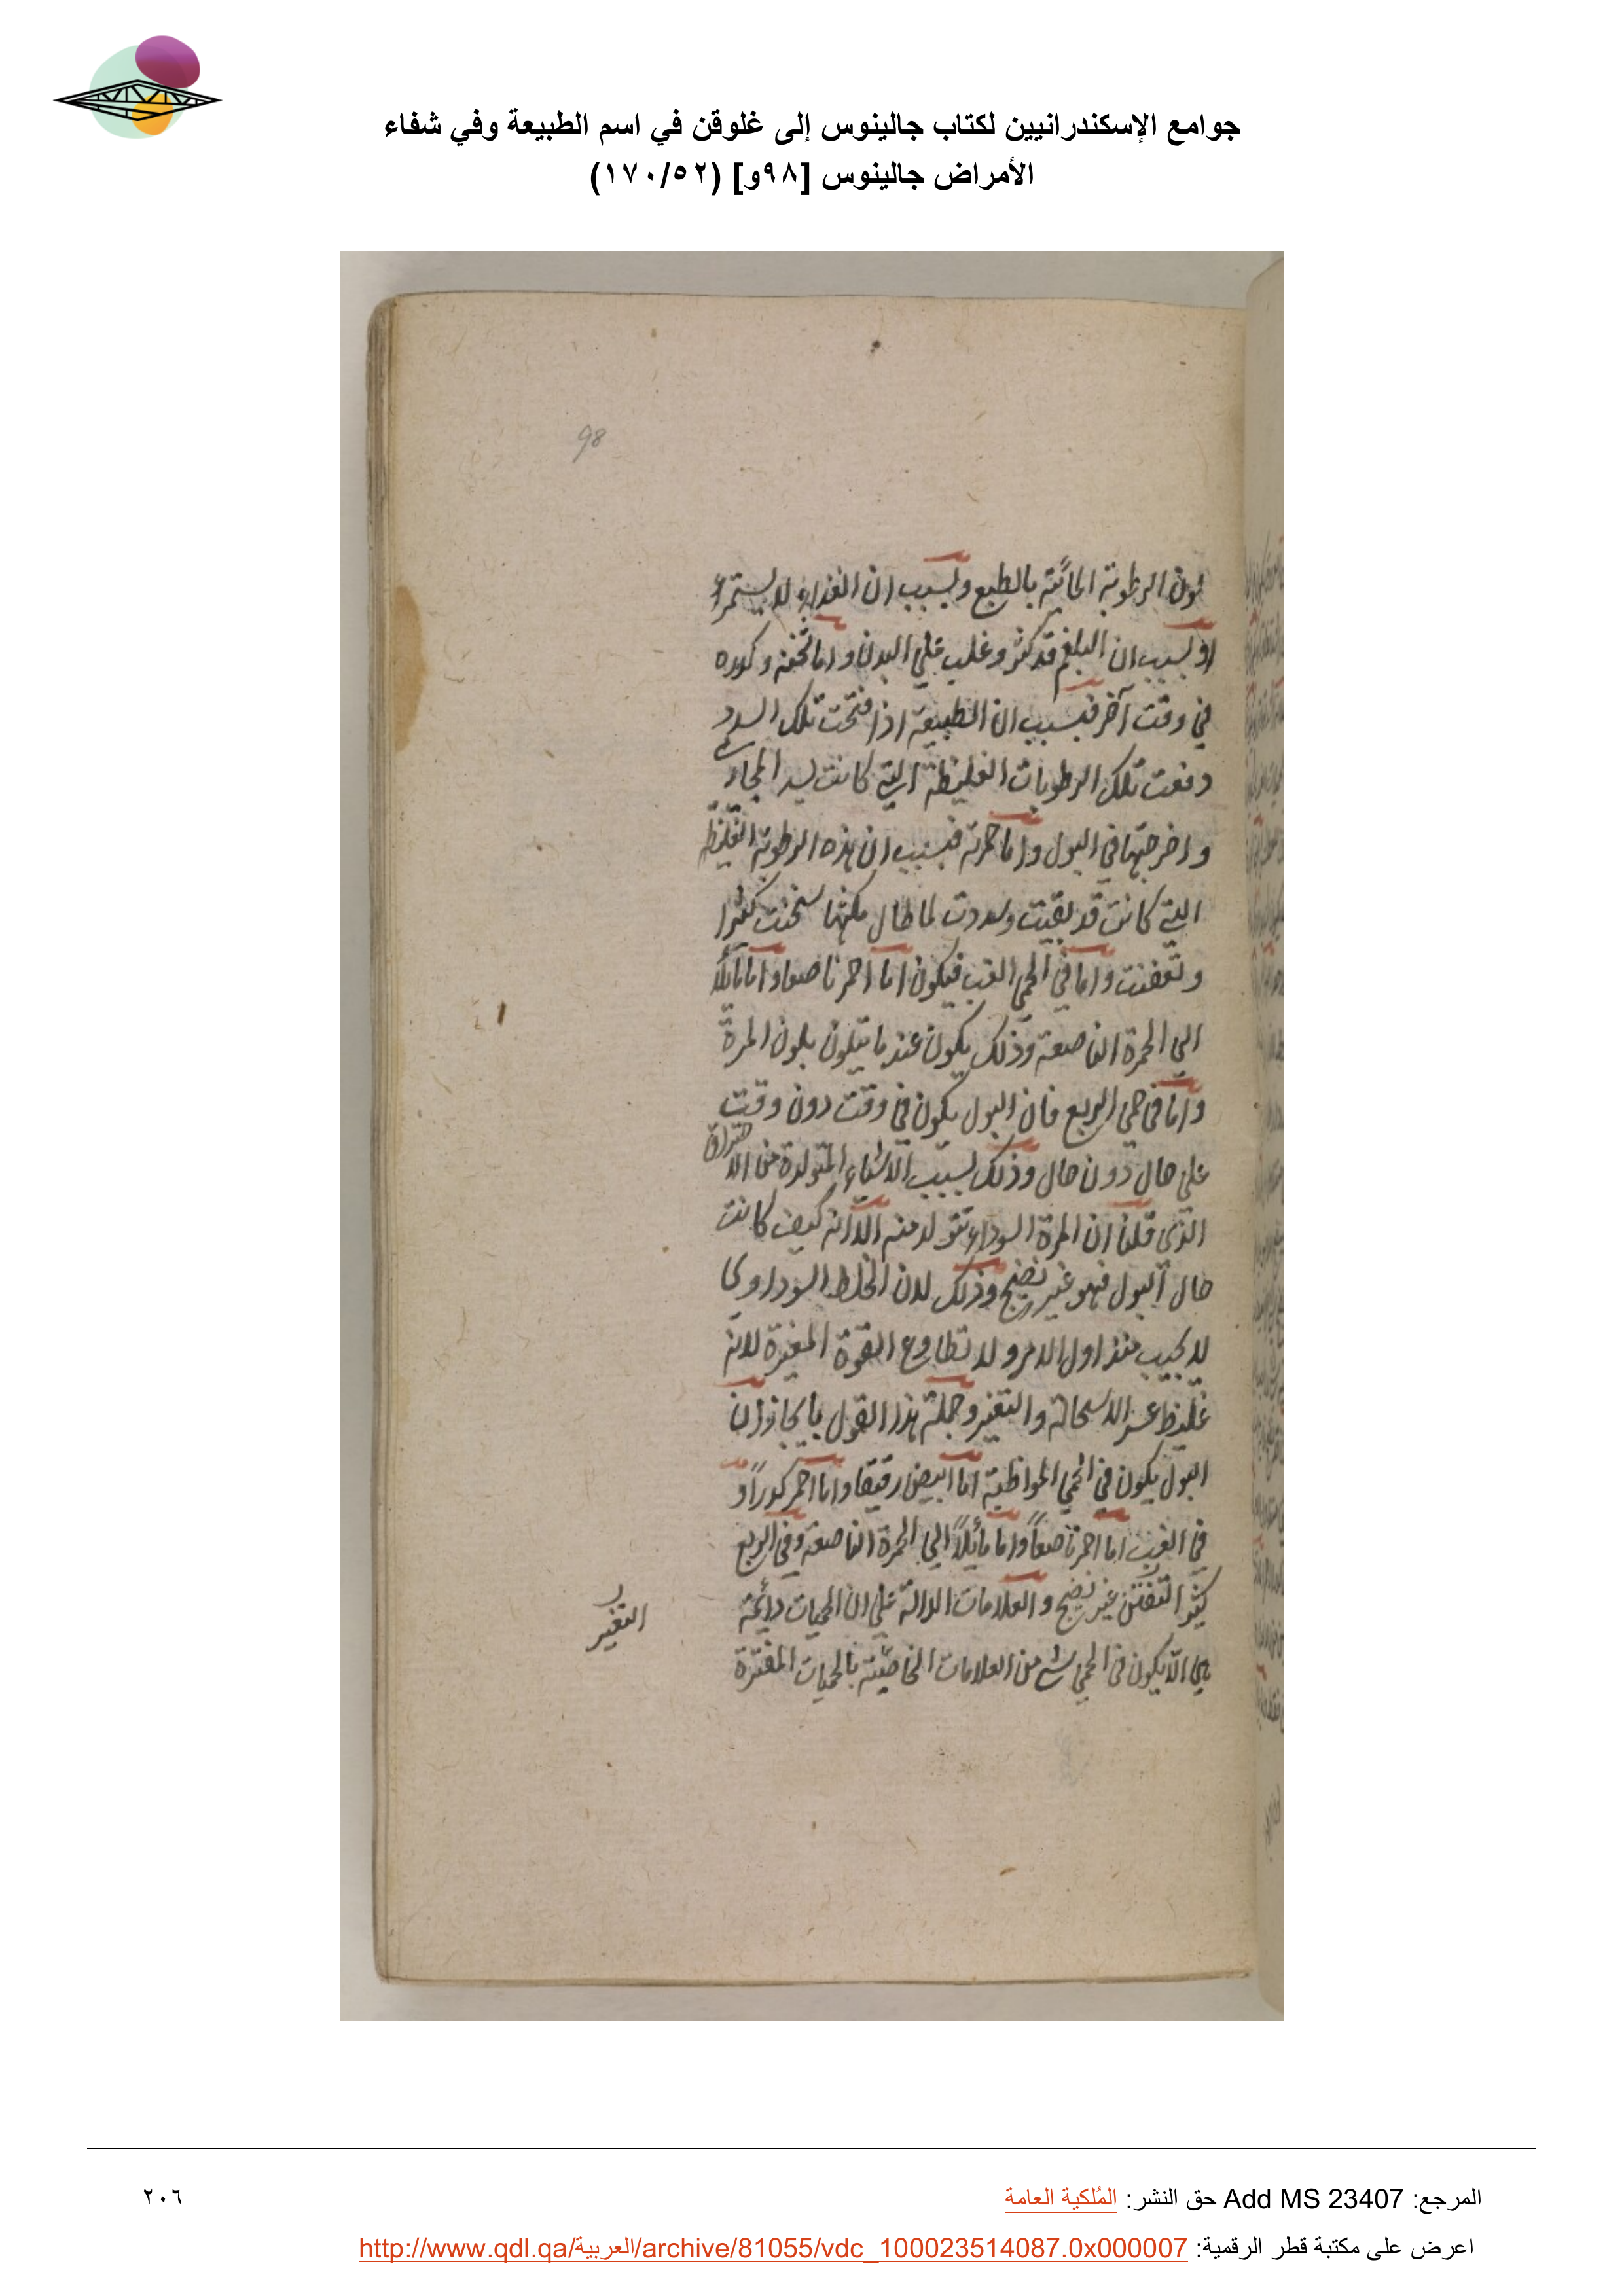 جوامع الإسكندرانيين لكتاب جالينوس إلى غلوقن في اسم الطبيعة وفي شفاء
الأمراض جالينوس [٩٨و] (١٧٠/٥٢)
98
لون الرطوبة المائية بالطبع وبسبب ان الغذاء لا يستمرء
او بسبب ان البلغم قد كثر وغلب على البدن واما ثخنه وكدره
في وقت آخر فبسبب ان الطبيعة اذا فتحت تلك السدد
دفعت تلك الرطوبات الغليظة التي كانت تسد المجاري
واخرجتها في البول واما حمرته فبسبب ان هذه الرطوبة الغليظة
التي كانت قد بقيت وسددت لما طال مكثها سخنت كثيرا
وتعفنت واما في الحمى الغب فيكون اما احمر ناصعا واما مائلا
الى الحمرة الناصعة وذلك يكون عند ما يتلون بلون المرة
واما في حمى الربع فان البول يكون في وقت دون وقت
على حال دون حال وذلك بسبب الاشياء المتولدة من الاحتراق
الذي قلنا ان المرة السوداء تتولد منه الا انه كيف كانت
حال البول فهو غير نضيج وذلك لان الخلط السوداوي
لا يجيب منذ اول الامر ولا تطاوع القوة المغيرة لانه
غليظ عسر الاستحالة والتغير وجملة هذا القول بايجاز ان
البول يكون في الحمى المواظبة اما ابيض رقيقا واما احمر كدرا و
في الغب اما احمر ناصعا واما مائلا الى الحمرة الناصعة وفي الربع
كثير التفنن غير نضيج والعلامات الدالة على ان الحميات دائمة
هي الا يكون في الحمى شي من العلامات الخاصية بالحميات المفترة
التغير
المرجع: Add MS 23407 حق النشر: المُلكية العامة
٢٠٦
اعرض على مكتبة قطر الرقمية: http://www.qdl.qa/العربية/archive/81055/vdc_100023514087.0x000007